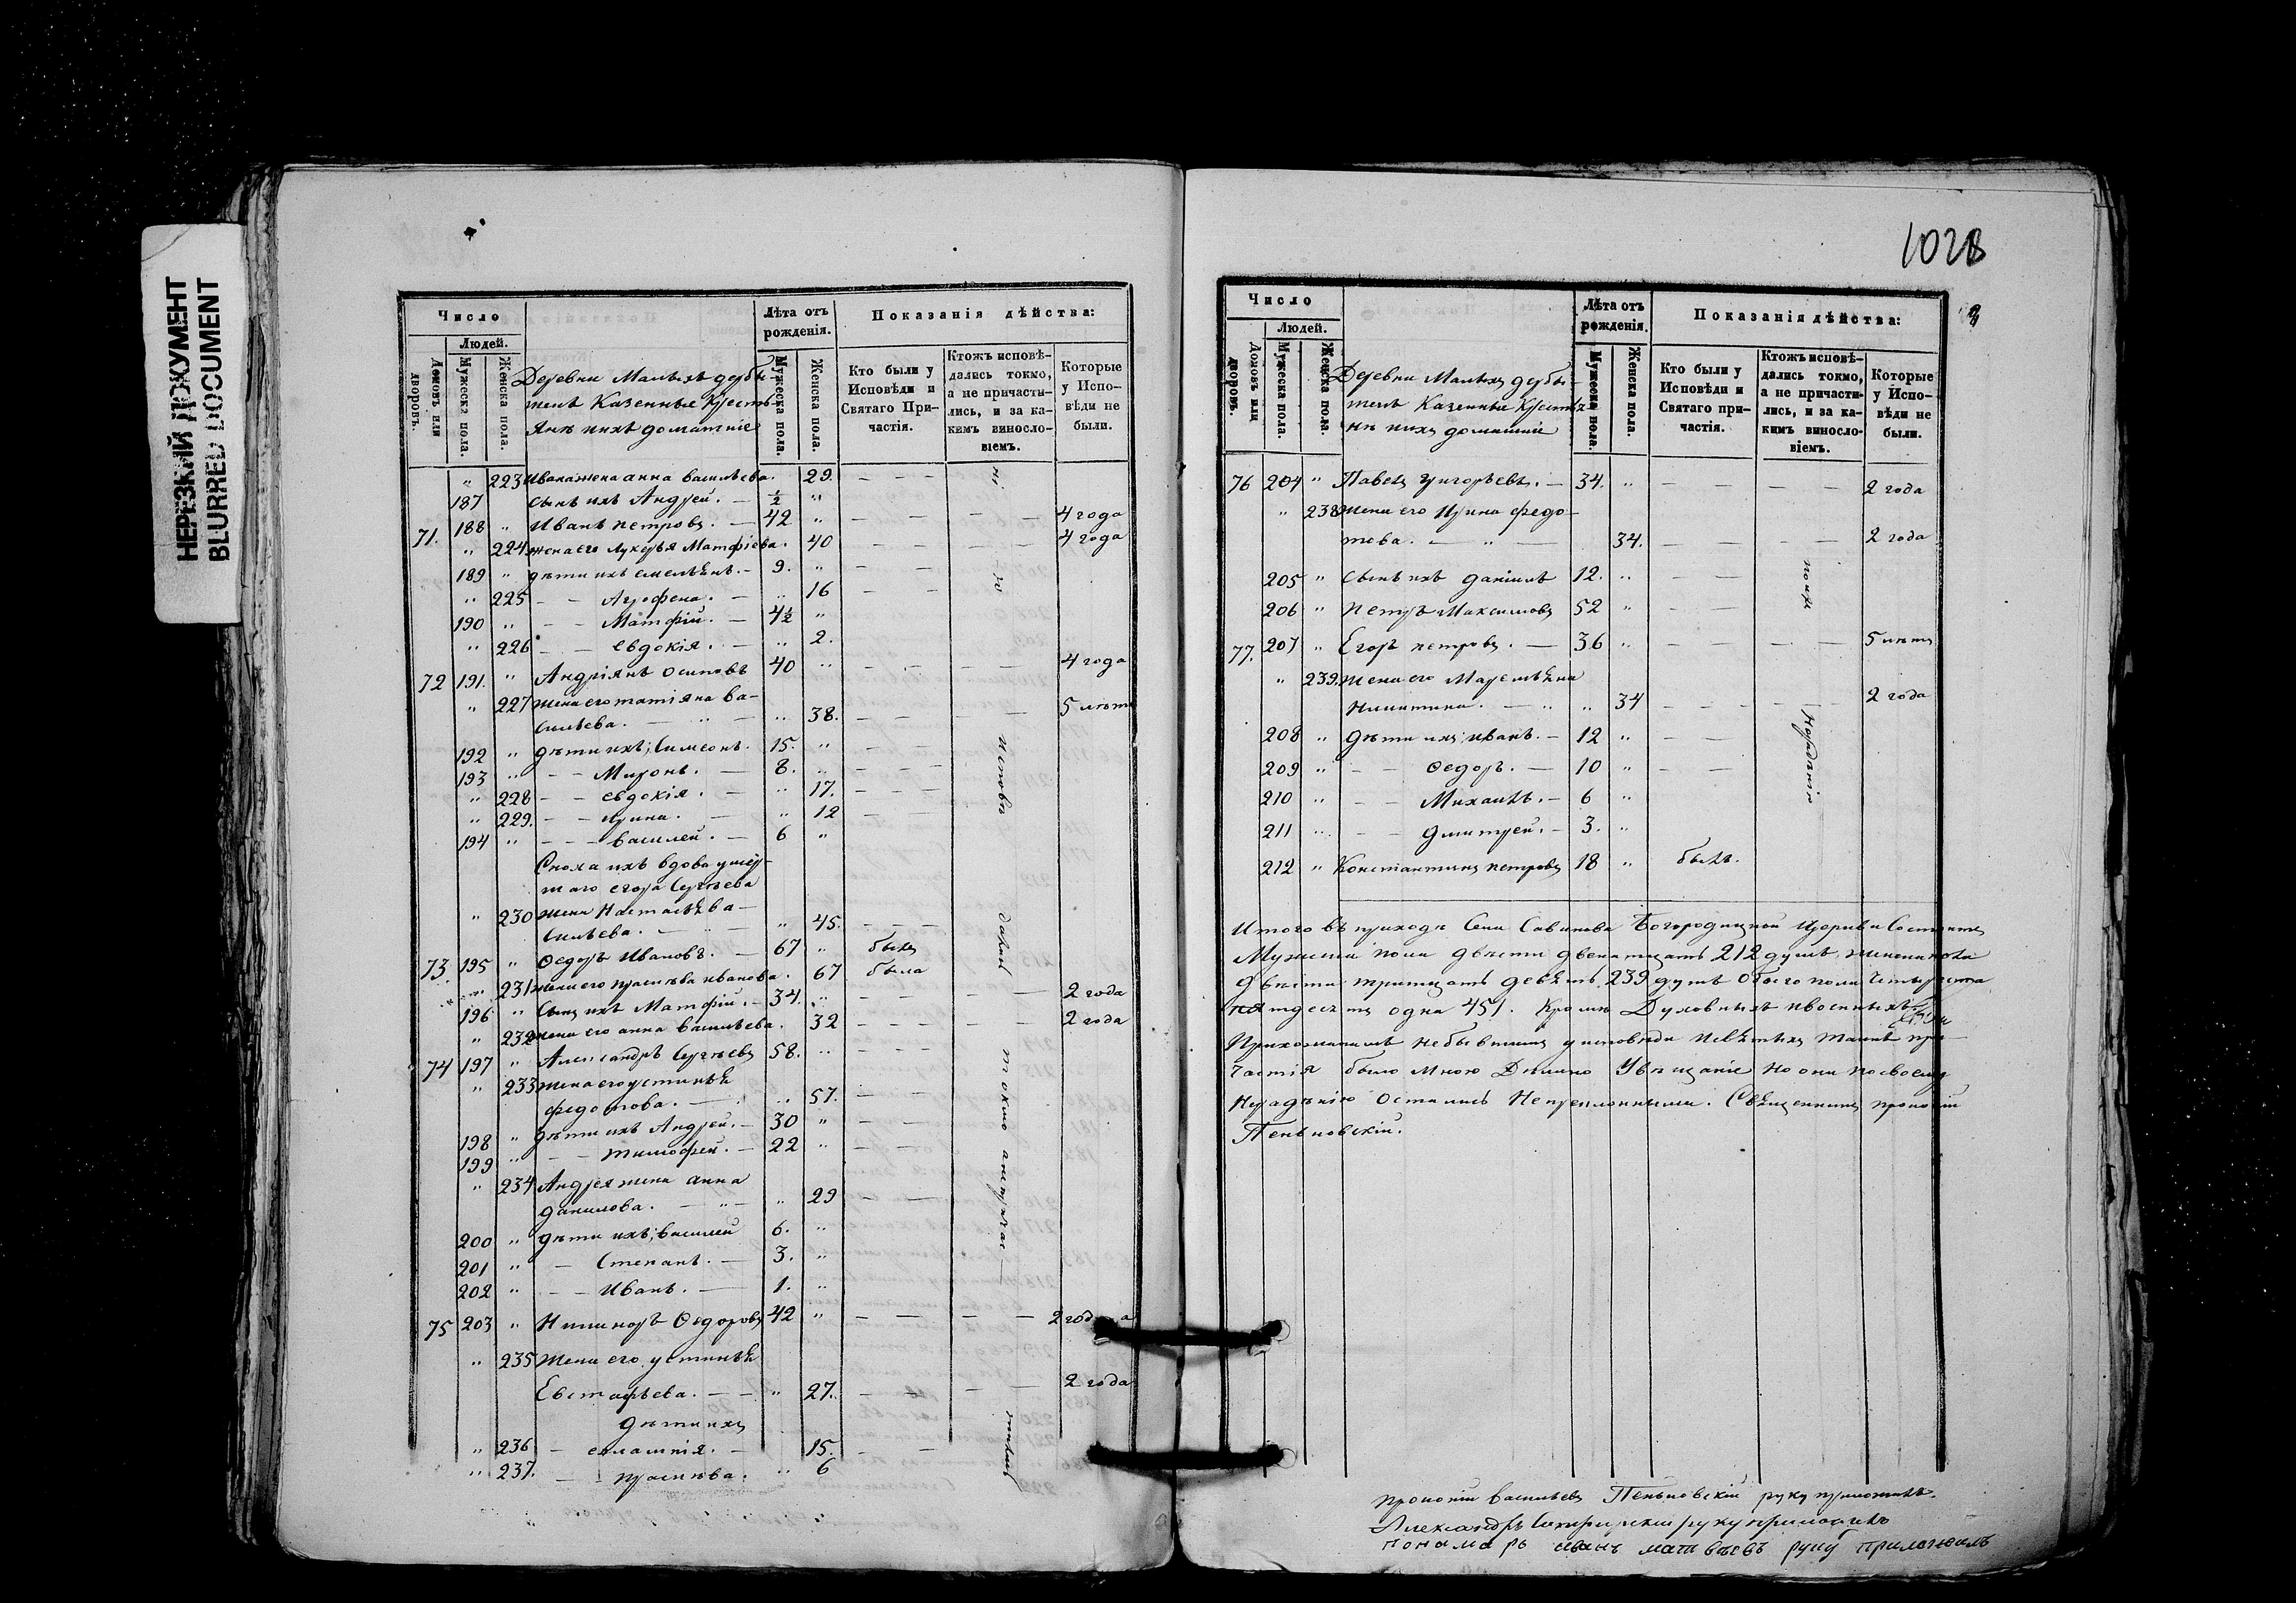 НЕРЕЗКИЙ ДОКУМЕНТ
BLURRED DOCUMENT
Число
Людей.
Домовъ или дворовъ.
Мужеска пола.
Женска пола.
Лѣта отъ рожденія.
Мужеска пола.
Женска пола.
Показанія дѣйства:
Кто были у Исповѣди и Святаго Причастія.
Ктожъ исповѣдались токмо, а не причастились, и за какимъ винословіемъ.
Которые у Исповѣди не были.
Деревни Малыхъ дербы-
шекъ Казенные Кресть
Янѣ ихъ домашніе
„ 223 Ивана жена анна васильева. 29. — — —
187 Сынъ ихъ Андрей. — ½ „
71. 188 „ Иванъ петровъ. — 42 „ — — — — 4 года
„ 224 жена его Лукерья Матфіева. 40 — — — — 4 года
189 „ дѣти ихъ емельянъ. — 9. „ — —
„ 225 — — Агрофена. — „ 16 — —
190 „ — — Матфій. — 4½ „
„ 226 — — евдокія. — „ 2.
72 191. „ Андріянъ осиповъ 40 „ — — — — 4 года
„ 227 жена его татіяна ва-
сильева. — „ — „ 38. — — — — 5 лѣтъ
192 „ дѣти ихъ; Симеонъ. 15. „ — —
193 „ — — Миронъ. — 8. „ — — —
„ 228 — — евдокія. — „ 17. — — —
„ 229. — — Ирина. — „ 12 — —
194 „ — — — василей. — 6 „
Сноха ихъ вдова умер-
шаго егора Сергѣева
„ 230 жена Настасья ва-
сильева. — „ — „ 45. — — —
73 195 „ Ѳедоръ Ивановъ. — 67 „ былъ
231 жена его прасковья иванова. 67 была
196 „ Сынъ ихъ Матфій. — 34. „ — — — — 2 года
„ 232 жена его анна васильева. 32 — — — — 2 года
74 197 „ Александръ Сергѣевъ 58. „ — — —
„ 233 жена его устинья
федотова. — „ 57. — — —
198 „ дѣти ихъ Андрей. — 30 „ — —
199 „ — — тимофей. — 22 „ — — —
„ 234 Андрея жена анна
данилова. — „ — „ 29 — —
200 „ дѣти ихъ; василей 6. „
201 „ — Степанъ. — 3. „
202 „ — — Иванъ. — 1. „
75 203 „ Никиноръ Ѳедоровъ 42 „ — — — — 2 года
„ 235 жена его устинья
Евстафьева. — — „ 27. — — — — 2 года
дѣти ихъ
„ 236 — евлампія. — 15. — —
„ 237. — — — „ 6
исповѣ
дались
токмо
а не причас—
тились
1028
Число
Людей.
Домовъ или дворовъ.
Мужеска пола.
Женска пола.
Лѣта отъ рожденія.
Мужеска пола.
Женска пола.
Показанія дѣйства:
Кто были у Исповѣди и Святаго причастія.
Ктожъ исповѣдались токмо, а не причастились, и за какимъ винословіемъ.
Которые у Исповѣди не были.
Деревни Малыхъ дербы-
шекъ Казенные Крестья
нѣ ихъ домашніе
76 204 „ Павелъ григорьевъ. — 34. „ — — — — 2 года
„ 238 жена его Ирина федо-
това. — „ — 34. — — — — 2 года
205 „ Сынъ ихъ даніилъ 12. „ — —
206 „ петръ Максимовъ 52 „ — —
77. 207 „ Егоръ петровъ. — 36 „ — — — — 5 лѣтъ
„ 239. жена его Маремьяна
Никитина. — „ „ 34 — — — — 2 года
208 „ дѣти ихъ; иванъ. — 12 „ — —
209 „ — — Ѳедоръ. — 10 „ — —
210 „ — — Михаилъ. — 6 „
211 „ — — дмитрей. — 3. „
212 „ Константинъ петровъ 18 „ былъ.
по ихъ
Нерадѣнію
Итого въ приходѣ Села Савинова Богородицкой Церкви Состоитъ
Мужеска пола двѣсти двенатцать 212 душъ, женска пола
двѣсти тритцать девять, 239 душъ обоего пола Четыреста
пятдесятъ одна 451. Кромѣ Духовныхъ и военныхъ
Прихожанамъ небывшимъ у исповѣди и святыхъ таинъ при-
частія было мною Дѣлано Увѣщаніе но они по своему
Нерадѣнію Остались Непреклонными. Священникъ прокопій
Пеньковскій.
прокопій васильевъ Пеньковскій руку приложилъ.
Александръ руку приложилъ
понамарь иванъ матвѣевъ руку приложилъ